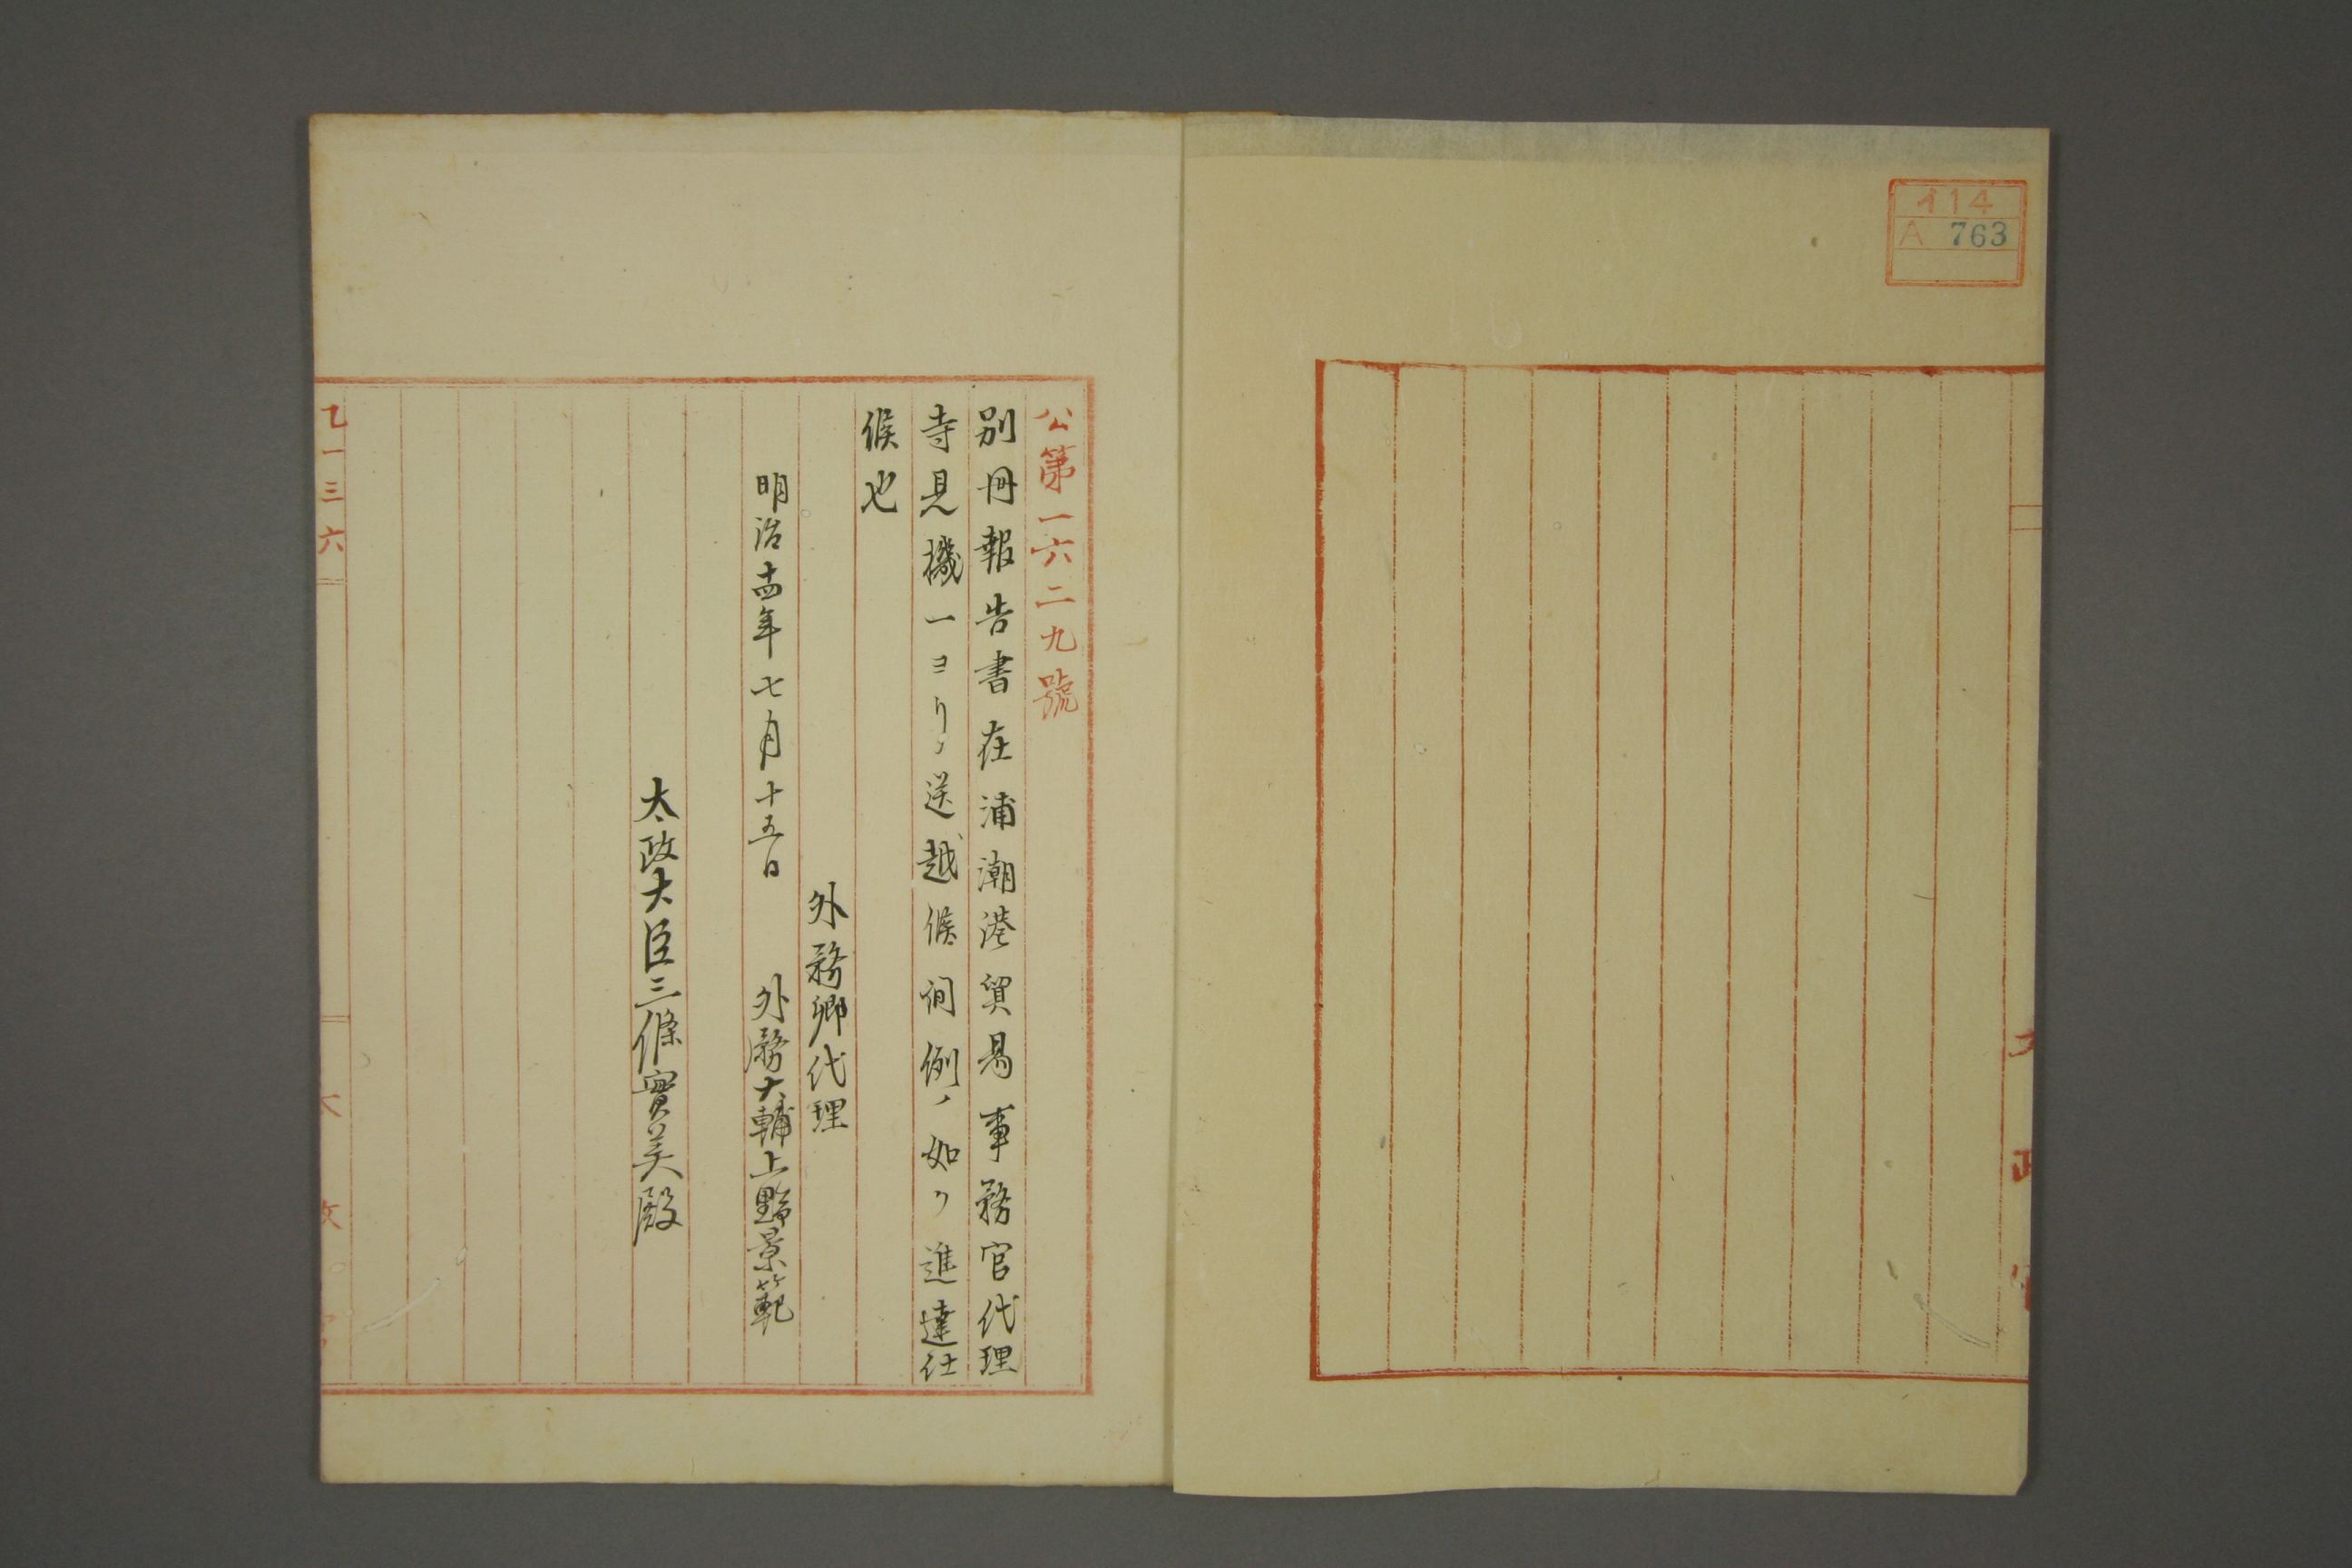 イ14
A 763
太政官
公第一六二九號
別冊報告書在浦潮港貿易事務官代理
寺見機一ヨリ送越候間例ノ如ク進達仕
候也
外務卿代理
明治十四年七月十五日 外務大輔上野景範
太政大臣三條實美殿
乙一三六
太政官